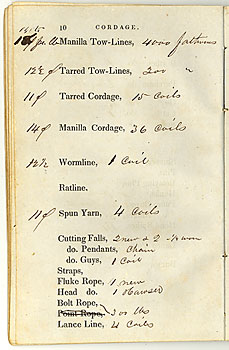 10 CORDAGE.
Manilla Tow-Lines, 4000 fathoms
Tarred Tow-Lines, 200 "
11 Tarred Cordage, 15 Coils
14 Manilla Cordage, 36 Coils
12½ Wormline, 1 Coil
Ratline.
11 Spun Yarn, 4 Coils
Cutting Falls, 2 new & 2 ½ worn
do. Pendants, Chain
do. Guys, 1 Coil
Straps,
Fluke Rope, 1 new
Head do. 1 Hawser
Bolt Rope,
Point Rope, 300 lbs
Lance Line, 4 Coils